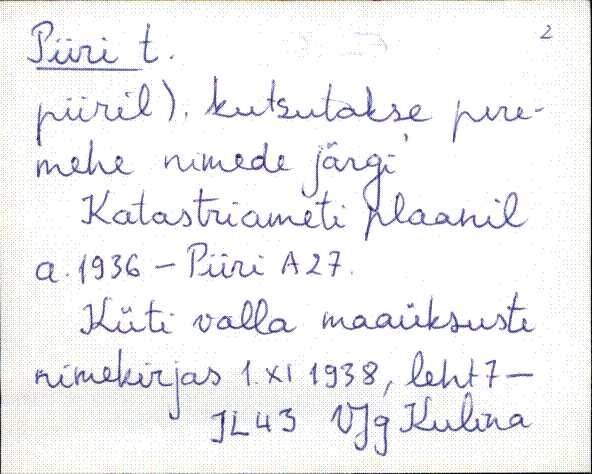 Piiri t. 2
piiril). kutsutakse pere-
mehe nimede järgi
Katastriameti plaanil
a. 1936 – Piiri A27.
Küti valla maaüksuste
nimekirjas 1. XI 1938, leht 7 –
JL43 VJg Kulina